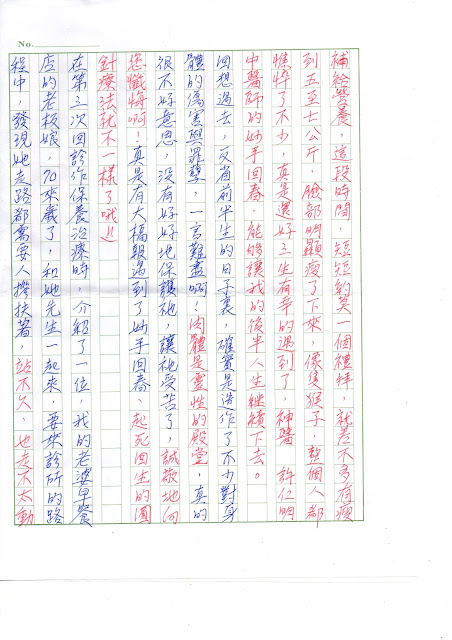 No.
補給營養，這段時間，短短約莫一個禮拜，就差不多有瘦
到五至七公斤，臉部明顯瘦了下來，像隻猴子，整個人都
憔悴了不少，真是還好三生有幸的遇到了，神醫 許仁明
中醫師的妙手回春，能夠讓我的後半人生継續下去。
回想過去，反省前半生的日子裏，確實是造作了不少對身
體的傷害與罪孽，一言難盡啊！肉體是靈性的殿堂，真的
很不好意思，沒有好好地保護祂，讓祂受苦了，誠敬地向
您懺悔啊！真是有大福報遇到了妙手回春、起死回生的圓
針療法就不一樣了哦!!
在第三次回診作保養治療時，介紹了一位，我的老婆早餐
店的老板娘，70來歲了，和她先生一起來，要來診所的路
程中，發現她走路都需要人攙扶著，站不久、也走不太動